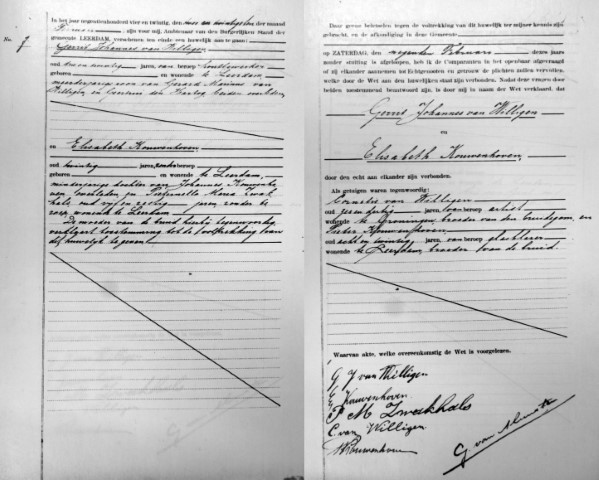 In het jaar negentienhonderd vier en twintig, den zes en twintigsten der maand
, zijn voor mij, Ambtenaar van den Burgerlijken Stand der
No. 7
gemeente LEERDAM, verschenen ten einde een huwelijk aan te gaan:
Gerrit Johannes van Willigen
oud twintig jaren, van beroep
geboren en wonende te Leerdam,
meerderjarige zoon van Gerard Marinus van
Willigen en den Hartog beiden overleden,
en Elisabeth Kouwenhoven
oud twintig jaren, beroep
geboren en wonende te Leerdam,
minderjarige dochter van Johannes Kouwenho-
ven, overleden, en Maria Zwak-
hals, oud vijf en zestig jaren, zonder be-
roep, wonende te Leerdam.
De moeder van de bruid hierbij tegenwoordig
verklaart toestemming tot de voltrekking van
dit huwelijk te geven.
Daar geene beletselen tegen de voltrekking van dit huwelijk ter mijner kennis zijn
gebracht, en de afkondiging in deze gemeente
op ZATERDAG, den negenden Februari dezes jaars
zonder stuiting is afgeloopen, heb ik de Comparanten in het openbaar afgevraagd
of zij elkander aannemen tot Echtgenooten en getrouw de plichten zullen vervullen,
welke door de Wet aan den huwelijken staat zijn verbonden. Nadat deze vragen door
beiden toestemmend beantwoord zijn, is door mij in naam der Wet verklaard, dat
Gerrit Johannes van Willigen
en
Elisabeth Kouwenhoven,
door den echt aan elkander zijn verbonden.
Als getuigen waren tegenwoordig:
Cornelis van Willigen
oud jaren, van beroep
wonende te Groningen, broeder van den bruidegom, en
Pieter Kouwenhoven
oud acht en twintig jaren, van beroep glasblazer
wonende te Leerdam, broeder van de bruid.
Waarvan akte, welke overeenkomstig de Wet is voorgelezen.
G J van Willigen
E Kouwenhoven
P M Zwakhals
C. van Willigen
Kouwenhoven
G van